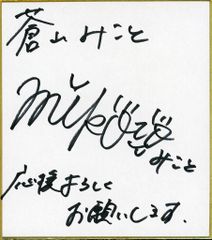 蒼山みこと
みこと
応援よろしく
お願いします.